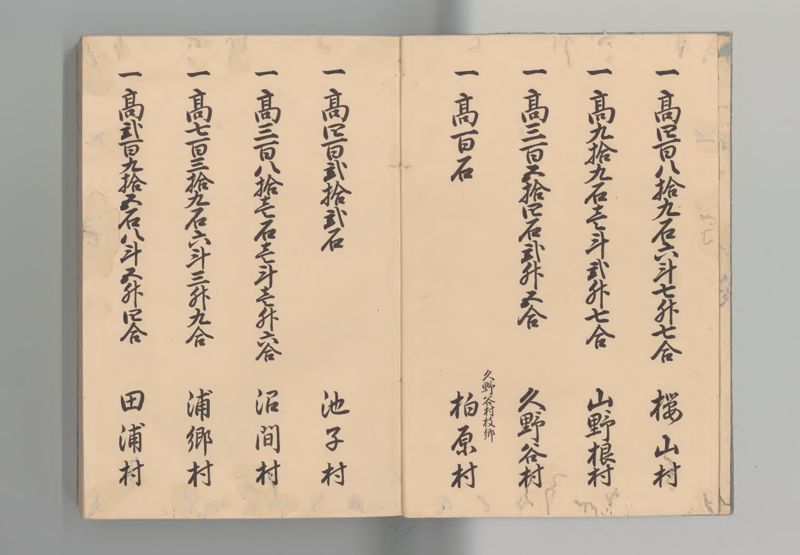 一高四百八拾九石六斗七升七合 桜山村
一高九拾九石壱斗弐升七合 山野根村
一高三百五拾四石弐升五合 久野谷村
久野谷村枝郷
一高百石 柏原村
一高四百弐拾弐石 池子村
一高三百八拾壱石壱斗壱升六合 沼間村
一高七百三拾九石六斗三升九合 浦郷村
一高弐百九拾五石八斗五升四合 田浦村